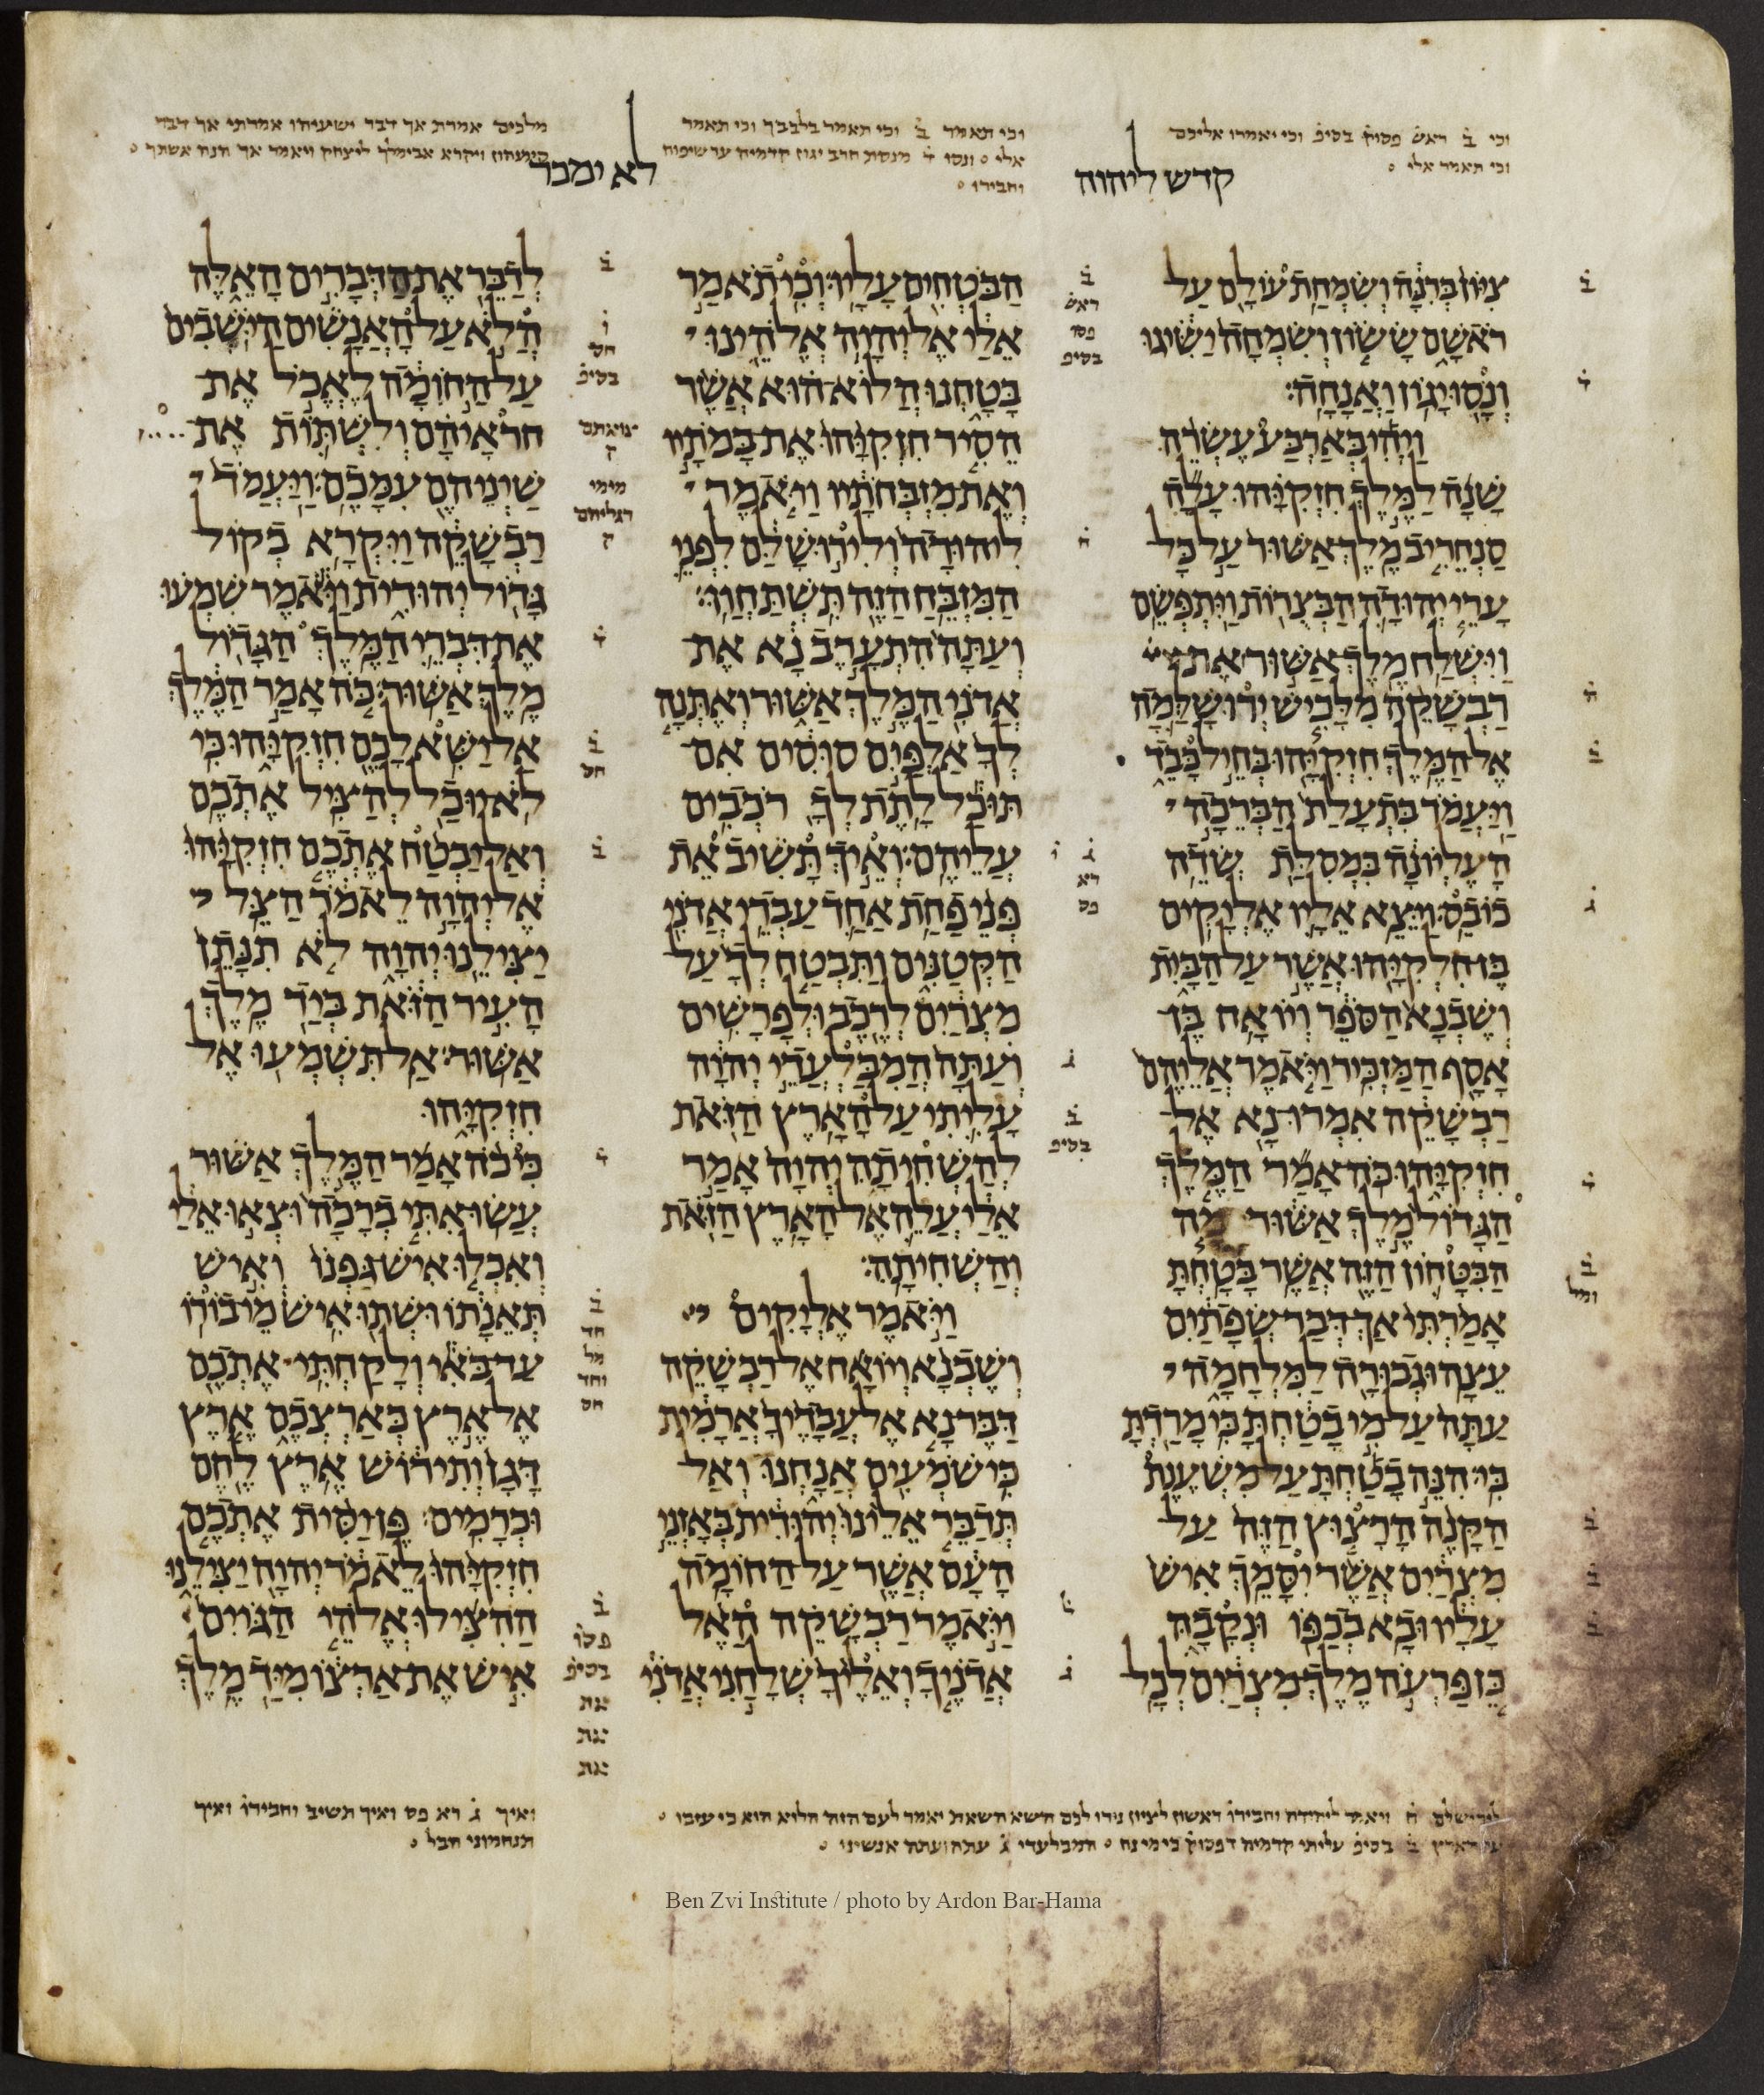 וכי ב ראש פסוק בסיפ וכי יאמרו אליכם
וכי תאמר אלי
וכי תאמר ב וכי תאמר בלבבך וכי תאמר
אלי ונסו ד מנסת חרב יגון קדמיה עד שיפוח
וחבירו
מלכים אמרת אך דבר ישעיהו אמרתי אך דבר
ויקרא אבימלך ליצחק ויאמר אך הנה אשתך
קדש ליהוה
לא ימכר
צִיּוֹן בְּרִנָּה וְשִׂמְחַת עוֹלָם עַל
רֹאשָׁם שָׂשׂוֹן וְשִׂמְחָה יַשִּׂיגוּ
וְנָסוּ יָגוֹן וַאֲנָחָה׃
וַיְהִי בְּאַרְבַּע עֶשְׂרֵה
שָׁנָה לַמֶּלֶךְ חִזְקִיָּהוּ עָלָה
סַנְחֵרִיב מֶלֶךְ אַשּׁוּר עַל כָּל
עָרֵי יְהוּדָה הַבְּצֻרוֹת וַיִּתְפְּשֵׂם
וַיִּשְׁלַח מֶלֶךְ אַשּׁוּר אֶת
רַבְשָׁקֵה מִלָּכִישׁ יְרוּשָׁלְַמָה
אֶל הַמֶּלֶךְ חִזְקִיָּהוּ בְּחֵיל כָּבֵד
וַיַּעֲמֹד בִּתְעָלַת הַבְּרֵכָה
הָעֶלְיוֹנָה בִּמְסִלַּת שְׂדֵה
כוֹבֵס׃ וַיֵּצֵא אֵלָיו אֶלְיָקִים
בֶּן חִלְקִיָּהוּ אֲשֶׁר עַל הַבָּיִת
וְשֶׁבְנָא הַסֹּפֵר וְיוֹאָח בֶּן
אָסָף הַמַּזְכִּיר׃ וַיֹּאמֶר אֲלֵיהֶם
רַבְשָׁקֵה אִמְרוּ נָא אֶל
חִזְקִיָּהוּ כֹּה אָמַר הַמֶּלֶךְ
הַגָּדוֹל מֶלֶךְ אַשּׁוּר מָה
הַבִּטָּחוֹן הַזֶּה אֲשֶׁר בָּטָחְתָּ
אָמַרְתִּי אַךְ דְּבַר שְׂפָתַיִם
עֵצָה וּגְבוּרָה לַמִּלְחָמָה
עַתָּה עַל מִי בָטַחְתָּ כִּי מָרַדְתָּ
בִּי׃ הִנֵּה בָטַחְתָּ עַל מִשְׁעֶנֶת
הַקָּנֶה הָרָצוּץ הַזֶּה עַל
מִצְרַיִם אֲשֶׁר יִסָּמֵךְ אִישׁ
עָלָיו וּבָא בְכַפּוֹ וּנְקָבָהּ
כֵּן פַּרְעֹה מֶלֶךְ מִצְרַיִם לְכָל
הַבֹּטְחִים עָלָיו׃ וְכִי תֹאמַר
אֵלַי אֶל יְהוָה אֱלֹהֵינוּ
בָּטָחְנוּ הֲלוֹא הוּא אֲשֶׁר
הֵסִיר חִזְקִיָּהוּ אֶת בָּמֹתָיו
וְאֶת מִזְבְּחֹתָיו וַיֹּאמֶר
לִיהוּדָה וְלִירוּשָׁלִַם לִפְנֵי
הַמִּזְבֵּחַ הַזֶּה תִּשְׁתַּחֲווּ׃
וְעַתָּה הִתְעָרֶב נָא אֶת
אֲדֹנִי הַמֶּלֶךְ אַשּׁוּר וְאֶתְּנָה
לְךָ אַלְפַּיִם סוּסִים אִם
תּוּכַל לָתֶת לְךָ רֹכְבִים
עֲלֵיהֶם׃ וְאֵיךְ תָּשִׁיב אֵת
פְּנֵי פַחַת אַחַד עַבְדֵי אֲדֹנִי
הַקְּטַנִּים וַתִּבְטַח לְךָ עַל
מִצְרַיִם לְרֶכֶב וּלְפָרָשִׁים׃
וְעַתָּה הֲמִבַּלְעֲדֵי יְהוָה
עָלִיתִי עַל הָאָרֶץ הַזֹּאת
לְהַשְׁחִיתָהּ יְהוָה אָמַר
אֵלַי עֲלֵה אֶל הָאָרֶץ הַזֹּאת
וְהַשְׁחִיתָהּ׃
וַיֹּאמֶר אֶלְיָקִים
וְשֶׁבְנָא וְיוֹאָח אֶל רַבְשָׁקֵה
דַּבֶּר נָא אֶל עֲבָדֶיךָ אֲרָמִית
כִּי שֹׁמְעִים אֲנָחְנוּ וְאַל
תְּדַבֵּר אֵלֵינוּ יְהוּדִית בְּאָזְנֵי
הָעָם אֲשֶׁר עַל הַחוֹמָה׃
וַיֹּאמֶר רַבְשָׁקֵה הַאֶל
אֲדֹנֶיךָ וְאֵלֶיךָ שְׁלָחַנִי אֲדֹנִי
לְדַבֵּר אֶת הַדְּבָרִים הָאֵלֶּה
הֲלֹא עַל הָאֲנָשִׁים הַיֹּשְׁבִים
עַל הַחוֹמָה לֶאֱכֹל אֶת
חראֵיהֶם וְלִשְׁתּוֹת אֶת
שֵׁינֵיהֶם עִמָּכֶם׃ וַיַּעֲמֹד
רַבְשָׁקֵה וַיִּקְרָא בְקוֹל
גָּדוֹל יְהוּדִית וַיֹּאמֶר שִׁמְעוּ
אֶת דִּבְרֵי הַמֶּלֶךְ הַגָּדוֹל
מֶלֶךְ אַשּׁוּר׃ כֹּה אָמַר הַמֶּלֶךְ
אַל יַשִּׁא לָכֶם חִזְקִיָּהוּ כִּי
לֹא יוּכַל לְהַצִּיל אֶתְכֶם׃
וְאַל יַבְטַח אֶתְכֶם חִזְקִיָּהוּ
אֶל יְהוָה לֵאמֹר הַצֵּל
יַצִּילֵנוּ יְהוָה לֹא תִנָּתֵן
הָעִיר הַזֹּאת בְּיַד מֶלֶךְ
אַשּׁוּר׃ אַל תִּשְׁמְעוּ אֶל
חִזְקִיָּהוּ
כִּי כֹה אָמַר הַמֶּלֶךְ אַשּׁוּר
עֲשׂוּ אִתִּי בְרָכָה וּצְאוּ אֵלַי
וְאִכְלוּ אִישׁ גַּפְנוֹ וְאִישׁ
תְּאֵנָתוֹ וּשְׁתוּ אִישׁ מֵי בוֹרוֹ׃
עַד בֹּאִי וְלָקַחְתִּי אֶתְכֶם
אֶל אֶרֶץ כְּאַרְצְכֶם אֶרֶץ
דָּגָן וְתִירוֹשׁ אֶרֶץ לֶחֶם
וּכְרָמִים׃ פֶּן יַסִּית אֶתְכֶם
חִזְקִיָּהוּ לֵאמֹר יְהוָה יַצִּילֵנוּ
הַהִצִּילוּ אֱלֹהֵי הַגּוֹיִם
אִישׁ אֶת אַרְצוֹ מִיַּד מֶלֶךְ
לירושלם ח ויאמר ליהודה וחבירו ראשון לציון נידו לכם הישא תשאת יאמר לעם הזה הלוא הוא כי עזבו
הארץ ב בסיפ עליתי קדמיה דפסוק כי מי נח המבלעדי ג עתה ועתה אנשינו
ואיך ג רא פס ואיך תשיב וחבירו ואיך
תנחמוני הבל
Ben Zvi Institute / photo by Ardon Bar-Hama